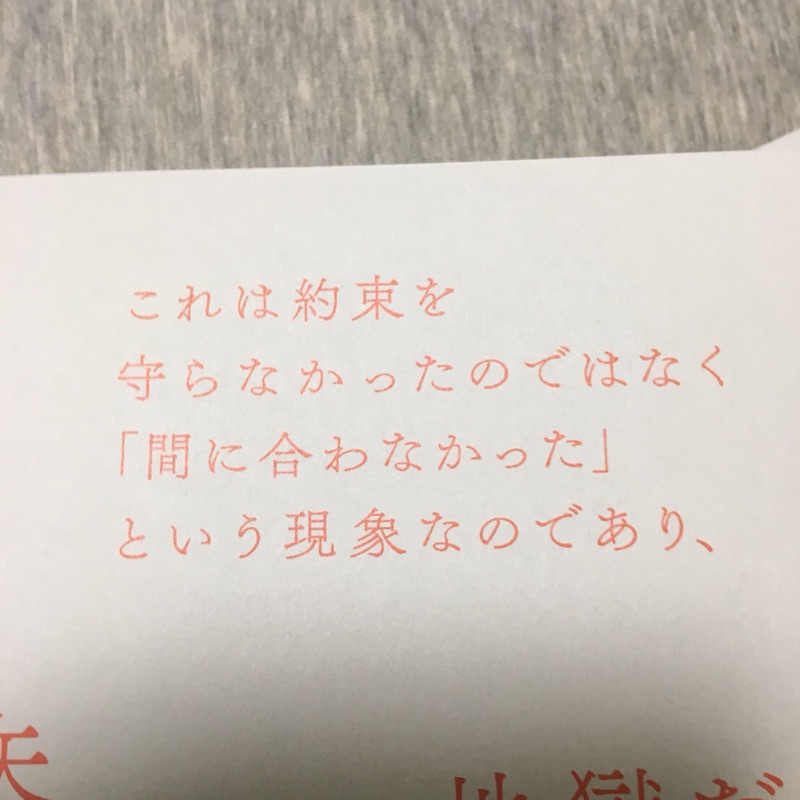 これは約束を
守らなかったのではなく
「間に合わなかった」
という現象なのであり、
矢
地獄だ